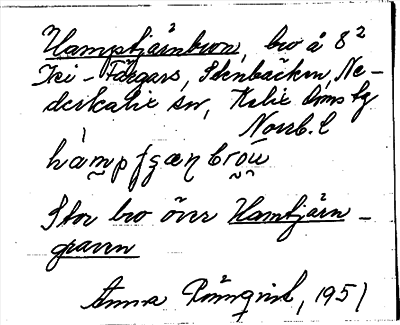 Hamptjärnbron, bro å 8²
Tei-Färgars, Stenbäcken, Ne-
derkalix sn, Kalix domstg
Norrb. l
hàmpʃęæɳbrōu
Stor bro över Hamtjärn-
graven
Anna Rönnqvist, 1951